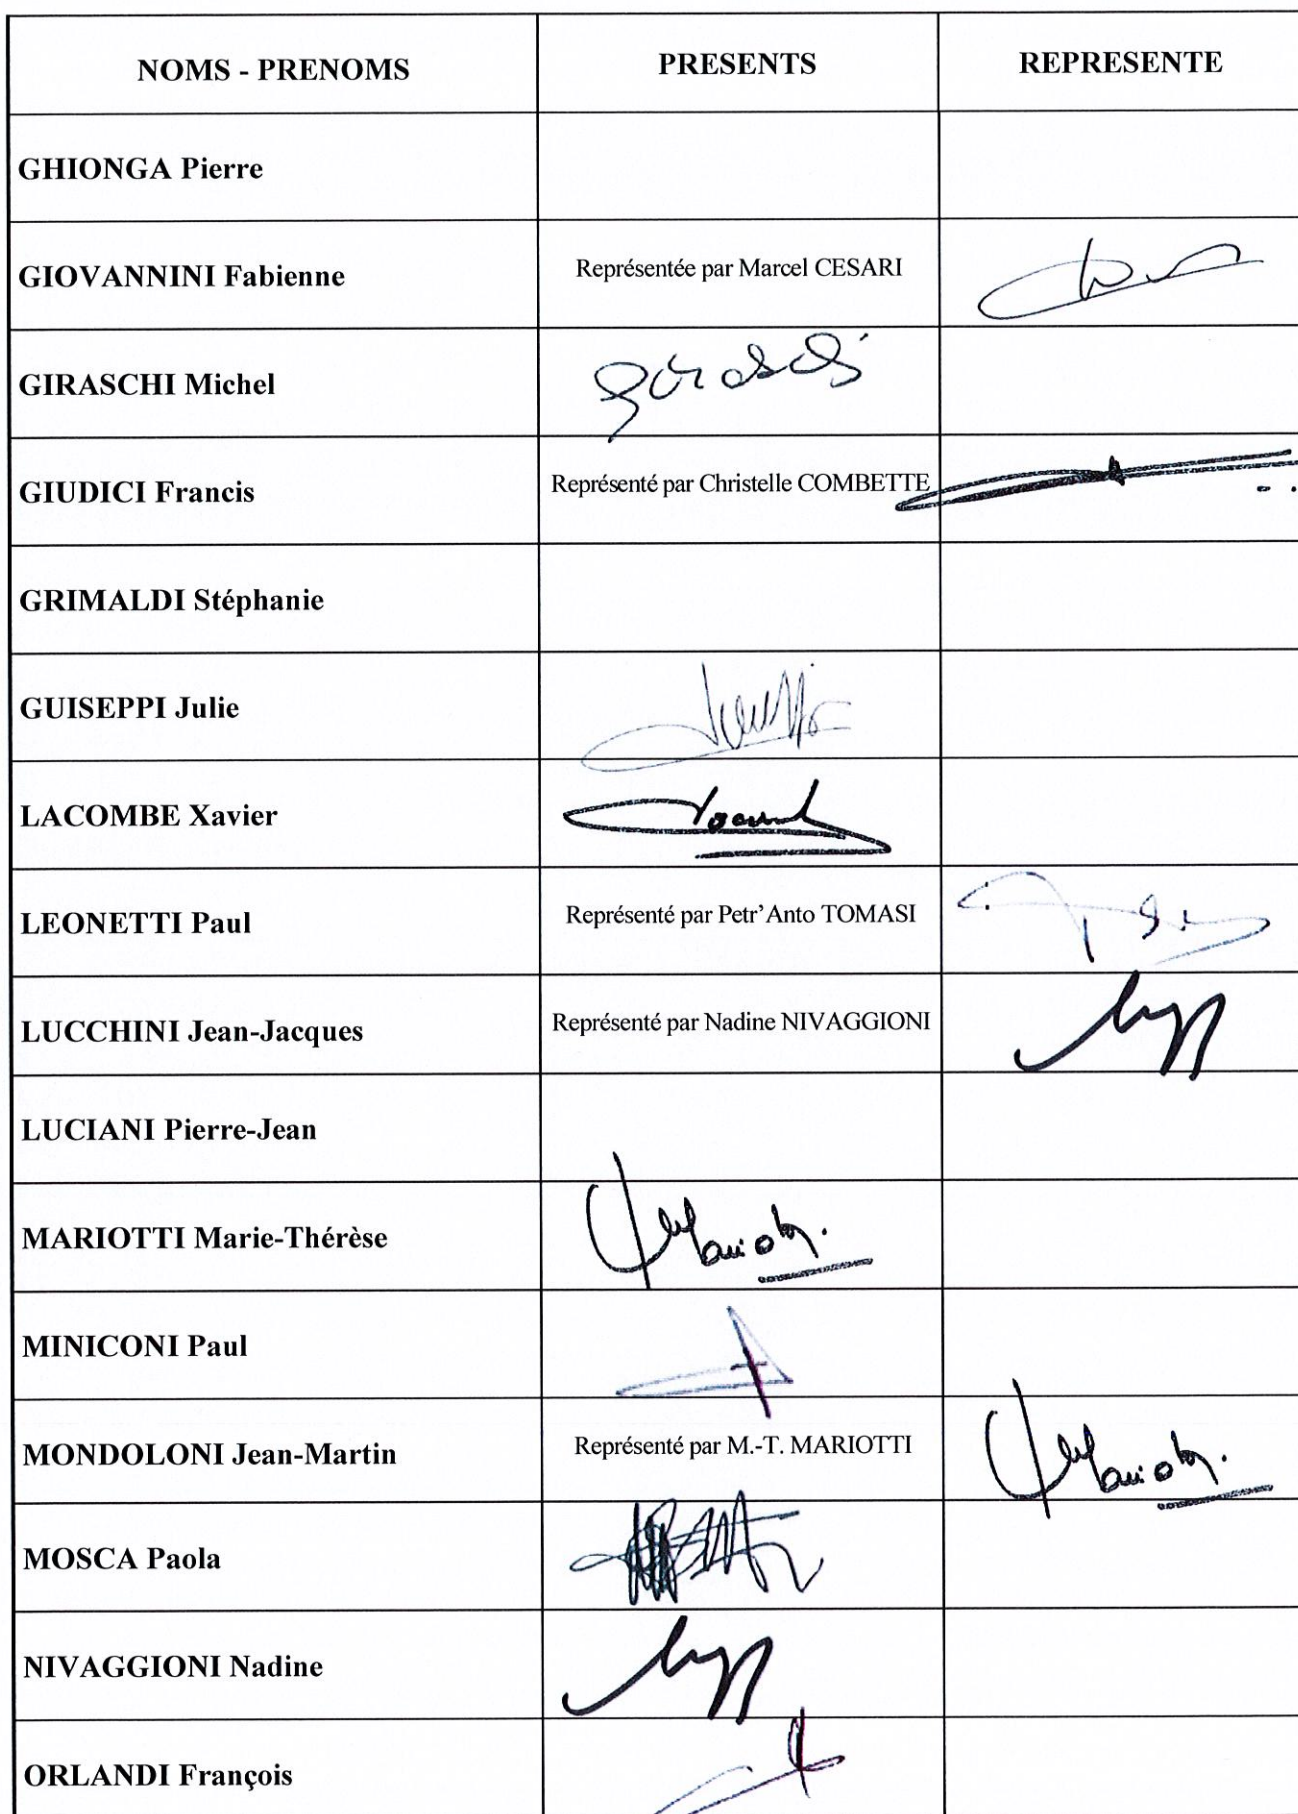 NOMS - PRENOMS PRESENTS REPRESENTE
GHIONGA Pierre
GIOVANNINI Fabienne Représentée par Marcel CESARI
GIRASCHI Michel Giraschi
GIUDICI Francis Représenté par Christelle COMBETTE
GRIMALDI Stéphanie
GUISEPPI Julie
LACOMBE Xavier
LEONETTI Paul Représenté par Petr'Anto TOMASI
LUCCHINI Jean-Jacques Représenté par Nadine NIVAGGIONI
LUCIANI Pierre-Jean
MARIOTTI Marie-Thérèse
MINICONI Paul
MONDOLONI Jean-Martin Représenté par M.-T. MARIOTTI
MOSCA Paola
NIVAGGIONI Nadine
ORLANDI François